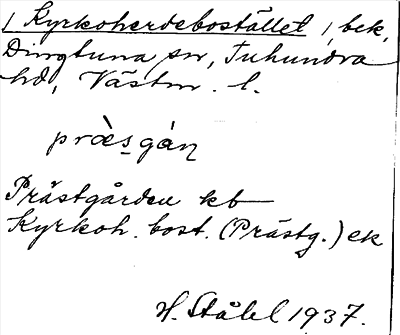 / Kyrkoherdebostället /, bek,
Dingtuna sn, Tuhundra
hd, Västm. l.
prä̀s̲gàn
Prästgården kb
Kyrkoh. bost. (Prästg.) ek
H. Ståhl 1937.